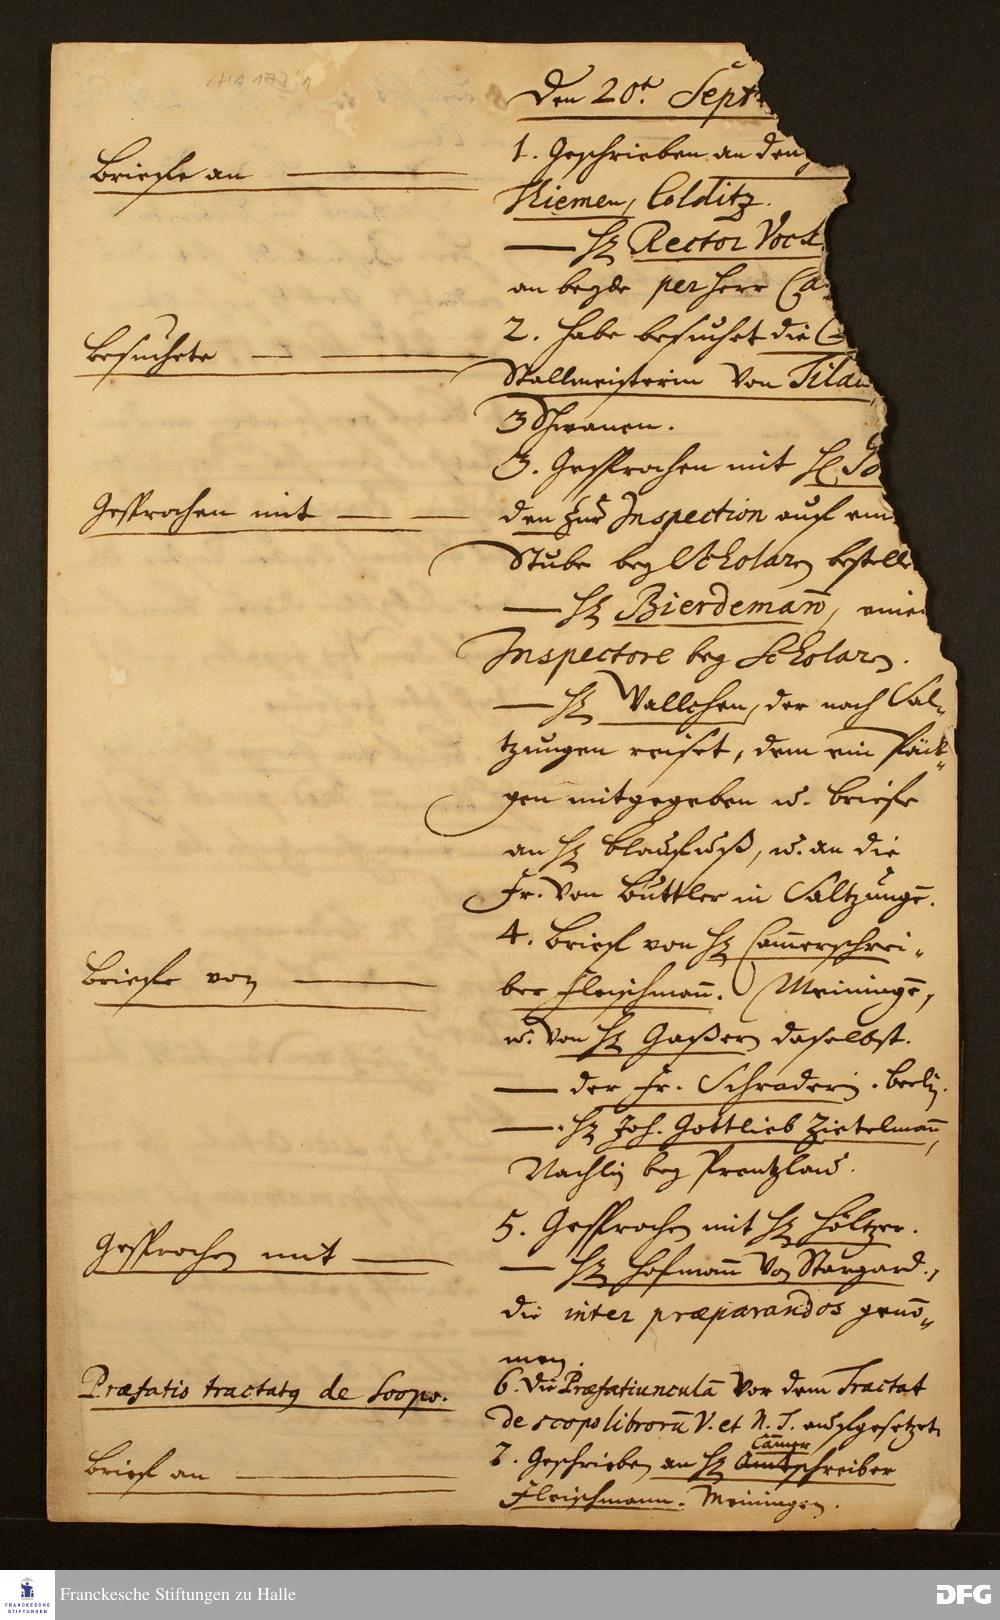 Den 20t. Sept.
Briefe an
1. Geschrieben an den
Kiemen, Colditz.
— H. Rector Vock
an beyde per Herr Ca
Besuchete
2. Habe besuchet die
Stallmeisterin von Tilau,
3 Schwanen.
3. Gesprochen mit H.
Gesprochen mit
den zur Inspection auf ein
Stube bey Scholaren bestell
— H. Bierdeman̄, eine
Inspectore bey Scholaren.
— H. Vallchen, der nach Sal-
tzungen reiset, dem ein Päck-
gen mitgegeben u. briefe
an H. Blaufuß, u. an die
Fr. von Buttler in Saltzungē.
4. Brief von H. Cam̄erschrei-
Briefe von
ber Fleischman̄. Meiningē,
u. von H. Gaßer daselbst.
— der Fr. Schraderin. Berlin.
— H. Joh. Gottlieb Zietelman̄,
Nachlin bey Prentzlau.
5. Gesprochen mit H. Höltzer.
Gesprochen mit
— H. Hofman̄ von Stargard.,
die inter præparandos genō-
men.
Præfatio tractatus de Scopo.
6. Die Præfatiunculā vor dem Tractat
de scopo librorū V. et N. T. aufgesetzet.
Cam̄er
7. Geschrieben an H. Amtschreiber
Brief an
Fleischmann. Meiningen.
Franckesche Stiftungen zu Halle
FRANCKESCHE
STIFTUNGEN
DFG